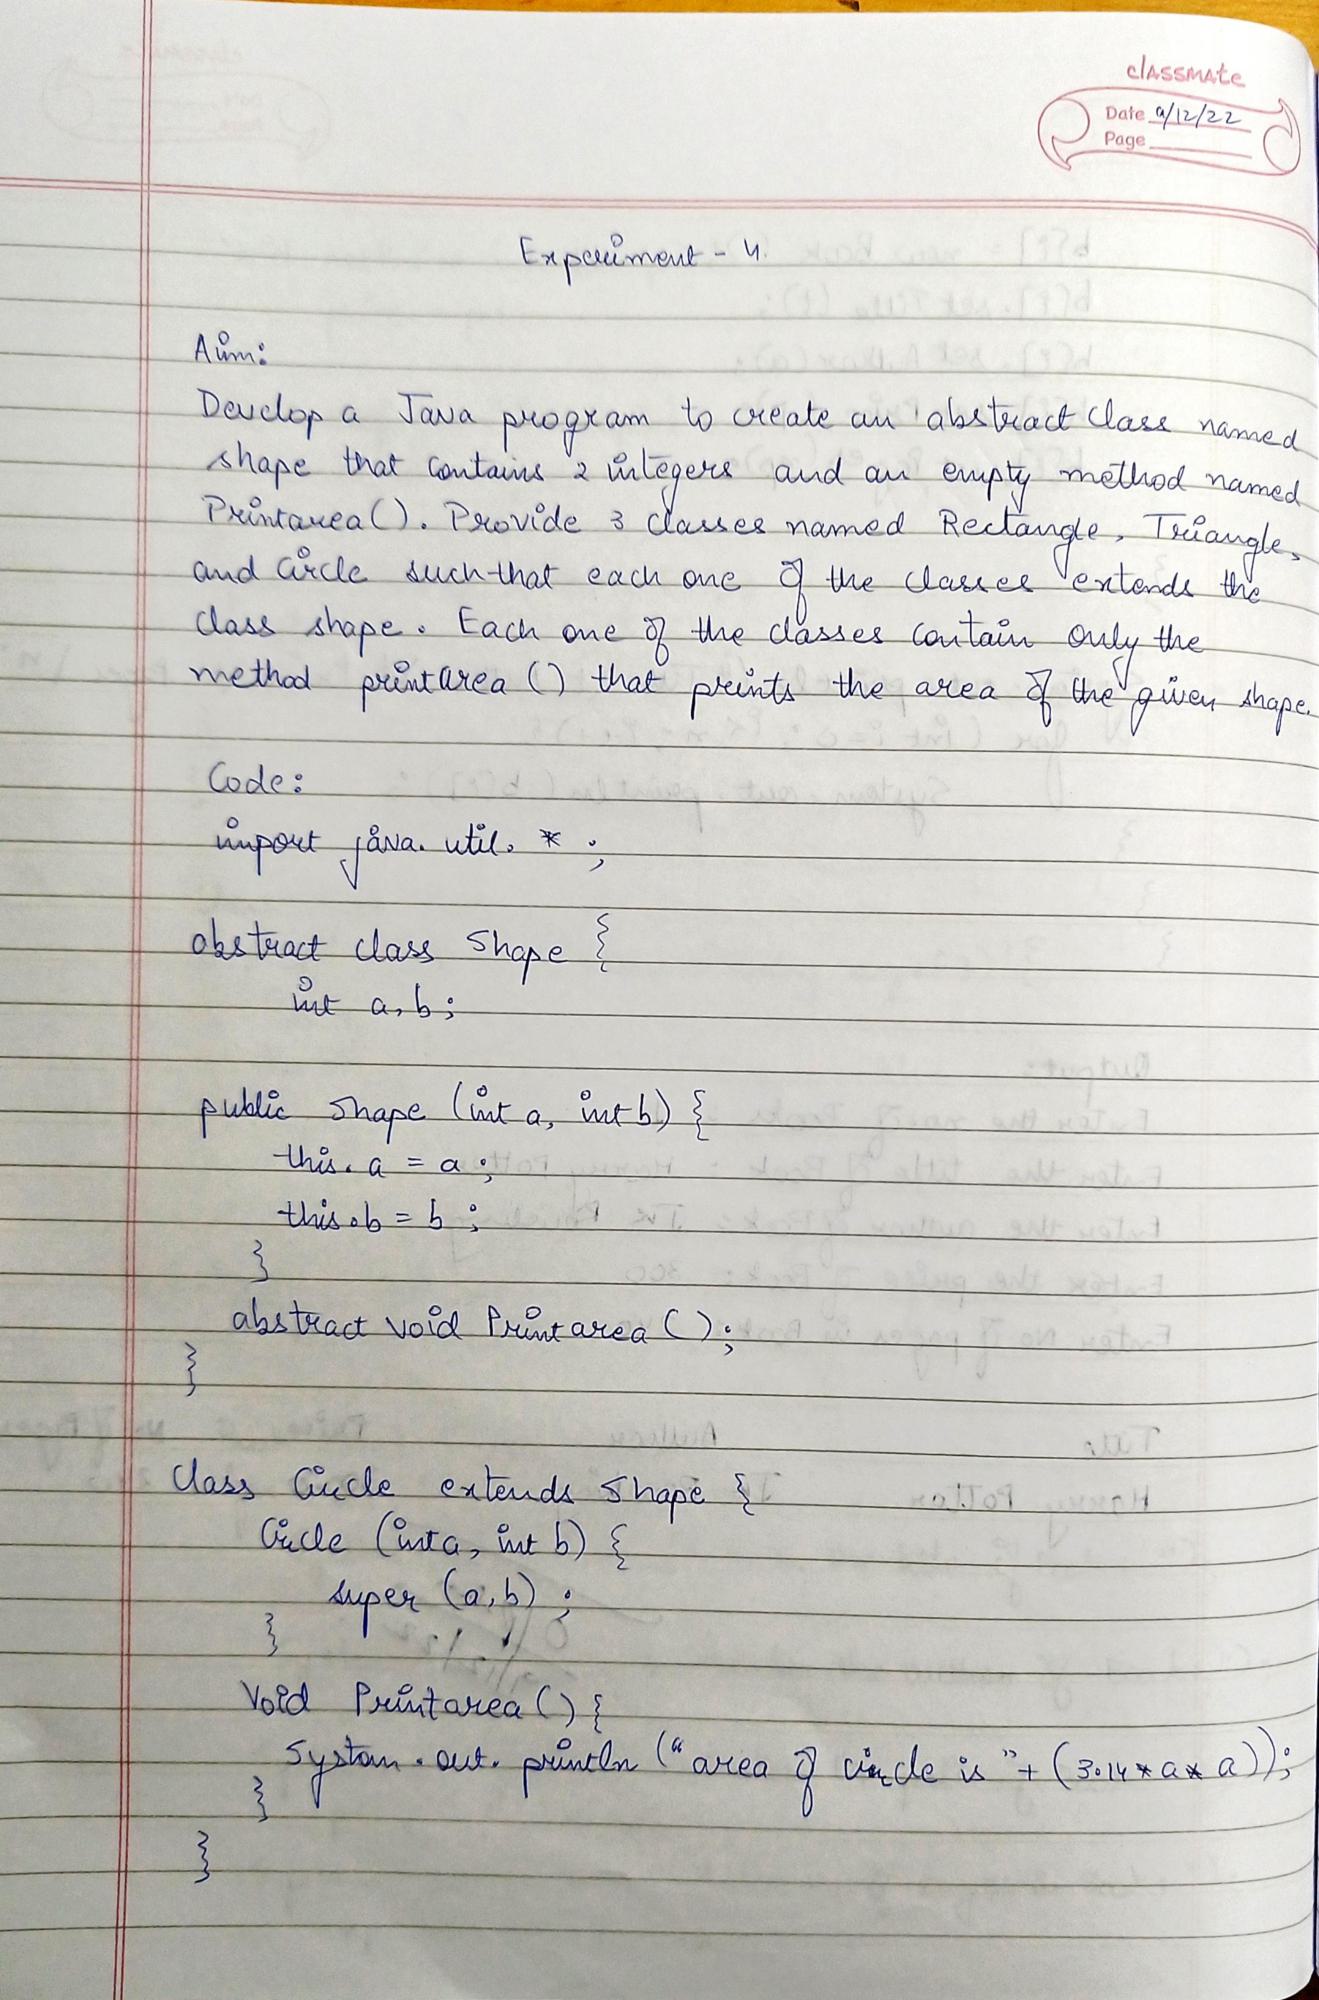 classmate
Date 9/12/22
Page
Experiment - 4.
Aim:
Develop a Java program to create an abstract class named
shape that contains 2 integers and an empty method named
Printarea(). Provide 3 classes named Rectangle, Triangle,
and Circle such that each one of the classes extends the
class shape. Each one of the classes contain only the
method printarea() that prints the area of the given shape.
Code:
import java.util.*;
abstract class Shape {
int a, b;
public Shape (int a, int b) {
this.a = a;
this.b = b;
}
abstract void Printarea();
}
Class Circle extends Shape {
Circle (int a, int b) {
super (a, b);
}
Void Printarea() {
System.out.println ("area of circle is "+(3.14*a*a));
}
}